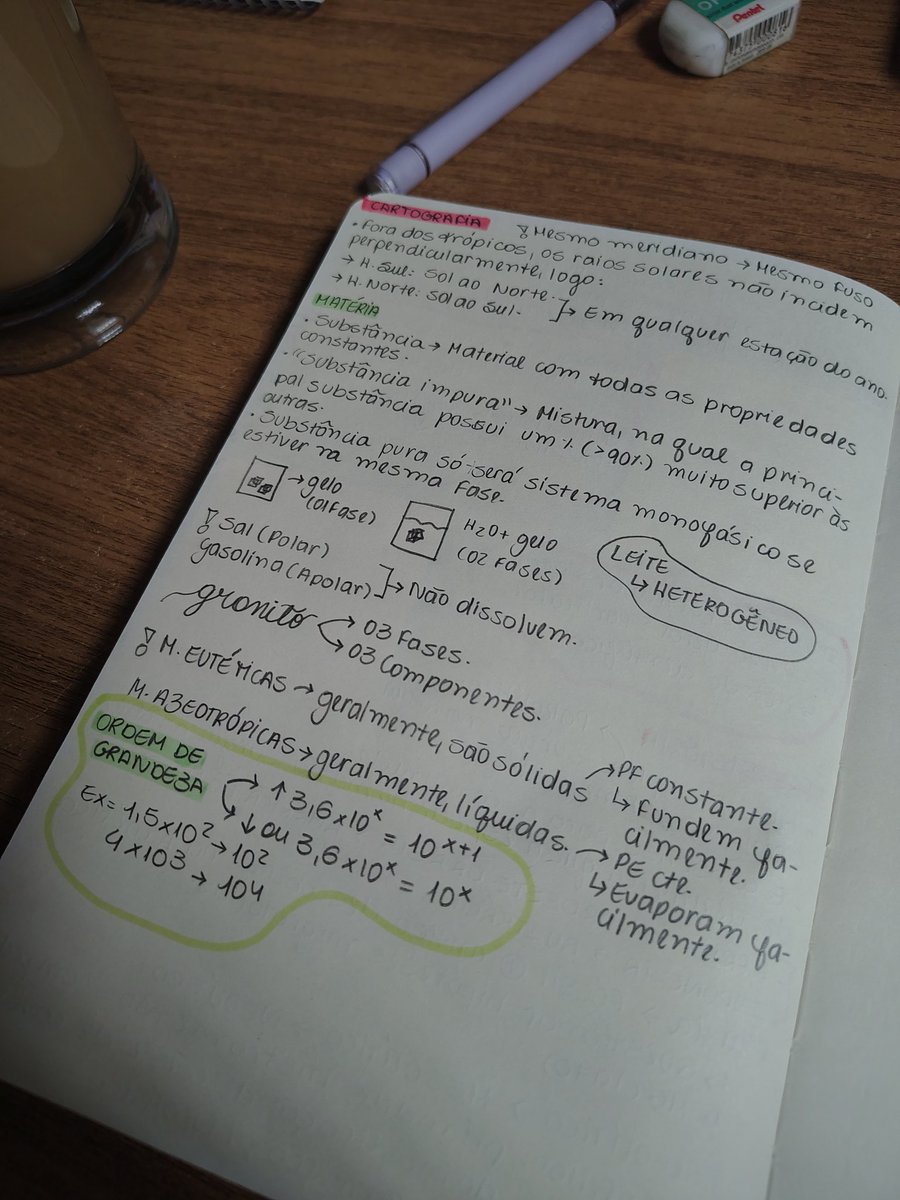 Pentel
CARTOGRAFIA
! Mesmo meridiano → Mesmo fuso
• Fora dos trópicos, os raios solares não incidem
perpendicularmente, logo:
→ H. Sul: Sol ao Norte.
→ H. Norte: Sol ao Sul.
→ Em qualquer estação do ano.
MATÉRIA
• Substância → Material com todas as propriedades
constantes.
• "Substância impura" → Mistura, na qual a princi-
pal substância possui um % (>90%) muito superior às
outras.
• Substância pura só será sistema monofásico se
estiver na mesma fase.
→ gelo
(01 fase)
H₂O + gelo
(02 fases)
LEITE
↳ HETEROGÊNEO
! Sal (Polar)
gasolina (Apolar)
→ Não dissolvem.
granito
→ 03 Fases.
→ 03 Componentes.
! M. EUTÉMICAS → geralmente, são sólidas
→ PF constante.
↳ Fundem fa-
cilmente.
M. AZEOTRÓPICAS → geralmente, líquidas.
→ PE cte.
↳ Evaporam fa-
cilmente.
ORDEM DE
GRANDEZA
→ ↑ 3,6 x 10ˣ = 10ˣ⁺¹
↓ ou 3,6 x 10ˣ = 10ˣ
Ex = 1,5 x 10² → 10²
4 x 103 → 104